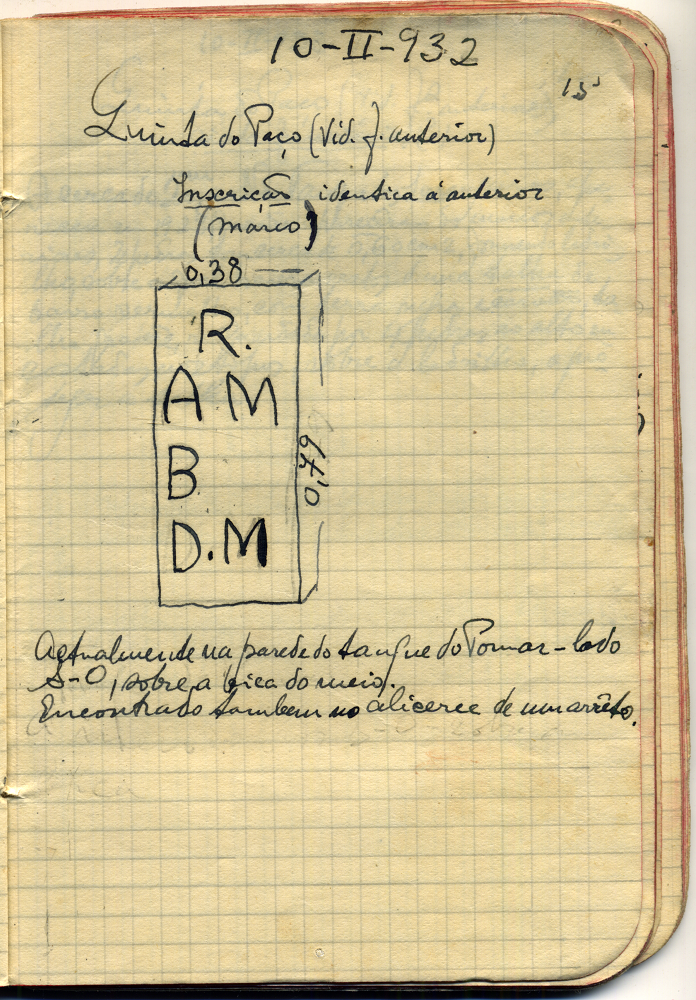 10-II-932
15
Quinta do Paço (Vid. f. anterior)
Inscrição identica á anterior
(Marco)
0,38
R.
A M
B
D.M
0,79
Actualmente na parede do tanque do Pomar - lado
S-O, sobre a bica do meio.
Encontrado tambem no alicerce de um arrêto.